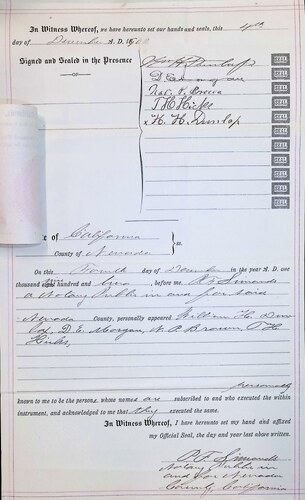 In Witness Whereof, we have hereunto set our hands and seals, this 4th
day of December A. D. 190
Signed and Sealed in the Presence
Wm H Dunlop
D E Morgan
Nat. P. Brown
T H Hicks
x H. H. Dunlop
e of California
ss.
County of Nevada
On this Fourth day of December in the year A. D. one
thousand hundred and , before me P. F. Simonds
a Notary Public in and for said
Nevada County, personally appeared William H. Dun
lop, D. E. Morgan, N. P. Brown T H
Hicks,
personally
known to me to be the persons whose names are subscribed to and who executed the within
instrument, and acknowledged to me that they executed the same.
In Witness Whereof, I have hereunto set my hand and affixed
my Official Seal, the day and year last above written.
P. F. Simonds
Notary Public in
and for Nevada
County, California